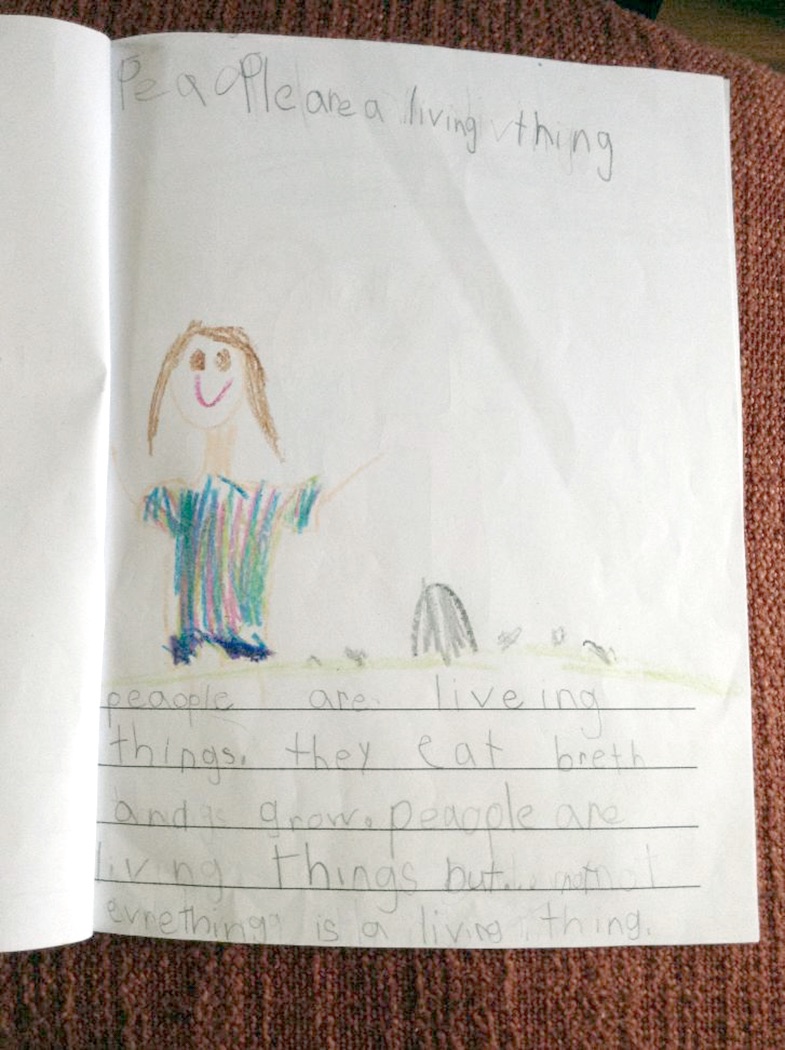 PeaoPle are a living thing
peaople are liveing
things. they eat breth
and grow. peaople are
living things but... not
evrething is a living thing.